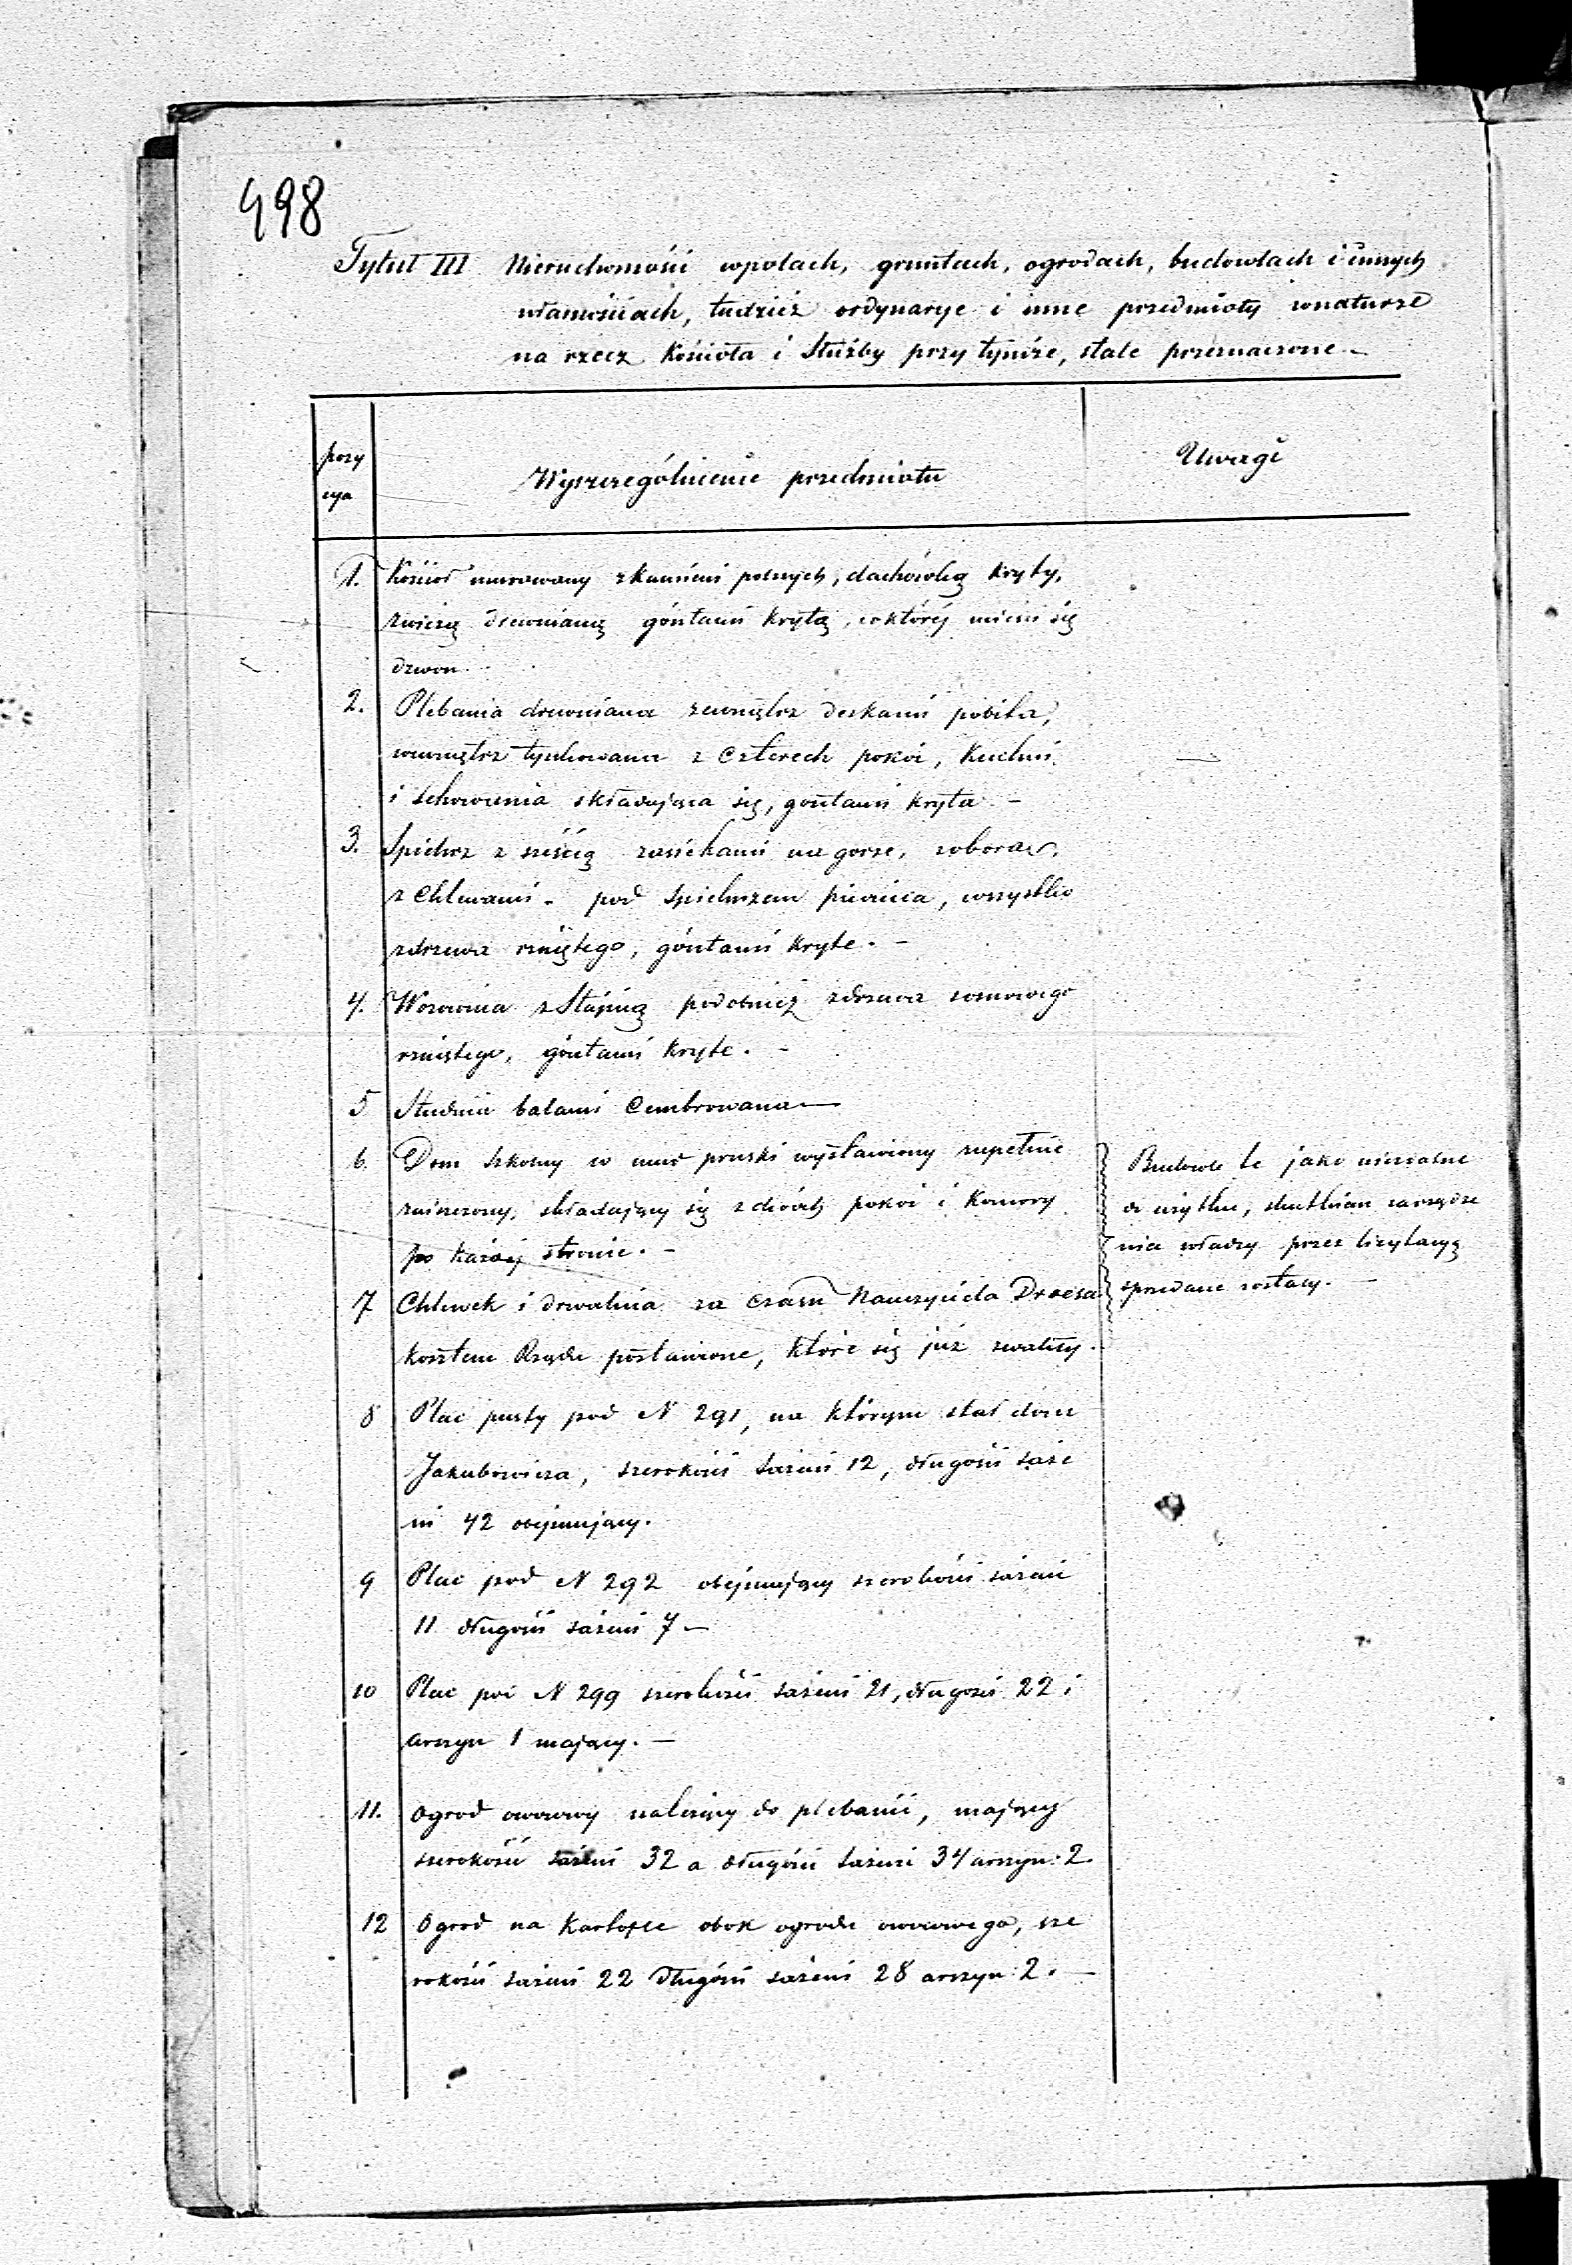 498
Tytuł III Nieruchomości w polach, gruntach, ogrodach, budowlach i innych
własnościach, tudzież ordynarye i inne przedmioty wnaturze
na rzecz Kościoła i Służby przy tymże, stale przeznaczone.—
pozy
cya
Wyszczególnienie przedmiotu
Uwagi
1. Kościoł murowany zkamieni polnych, dachówką kryty,
zwieżą drewnianą góntami krytą, wktórej mieści się
dzwon.
2. Plebania drewniana zewnątrz deskami pobita,
wewnątrz tynkowana z czterech pokoi, Kuchni
i schowania składająca się, gontami kryta.—
3. Spichrz z sześcią zasiekami na gorze, zoborą,
z Chlewami. pod spichrzem piwnica, wszystko
zdrzewa rzniętego, góntami kryte.—
4. Wozownia z Stajnią podobnież zdrzewa sosnowego
rzniętego, góntami kryte.—
5 Studnia balami Cembrowana—
6. Dom szkolny w mur pruski wystawiony zupełnie
zniszczony, składający się zdwóch pokoi i Komory
po każdej stronie.—
Budowle te jako niezdatne
do użytku, skutkiem zarządze
nia władzy przez licytacyą
sprzedane zostały.—
7 Chlewek i drwalnia za czasu Nauczyciela
kosztem Rządu postawione, które się już zwality.
8 Plac pusty pod N 291, na którym stał dom
Jakubowicza, szerokości sażeni 12, długości saże
ni 42 obejmujący.
9 Plac pod N 292 obejmujący szerokości sażeni
11 długości sażeni 7—
10 Plac pod N 299 szerokości sażeni 21, długości 22 i
arszyn 1 mający.—
11. Ogrod owocowy należący do plebanii, mający
szerokość sażeni 32 a długości sażeni 34 arszyn: 2.
12 Ogrod na Kartofle obok ogrodu owocowego, sze
rokości sażeni 22 długości sażeni 28 arszyn: 2.—